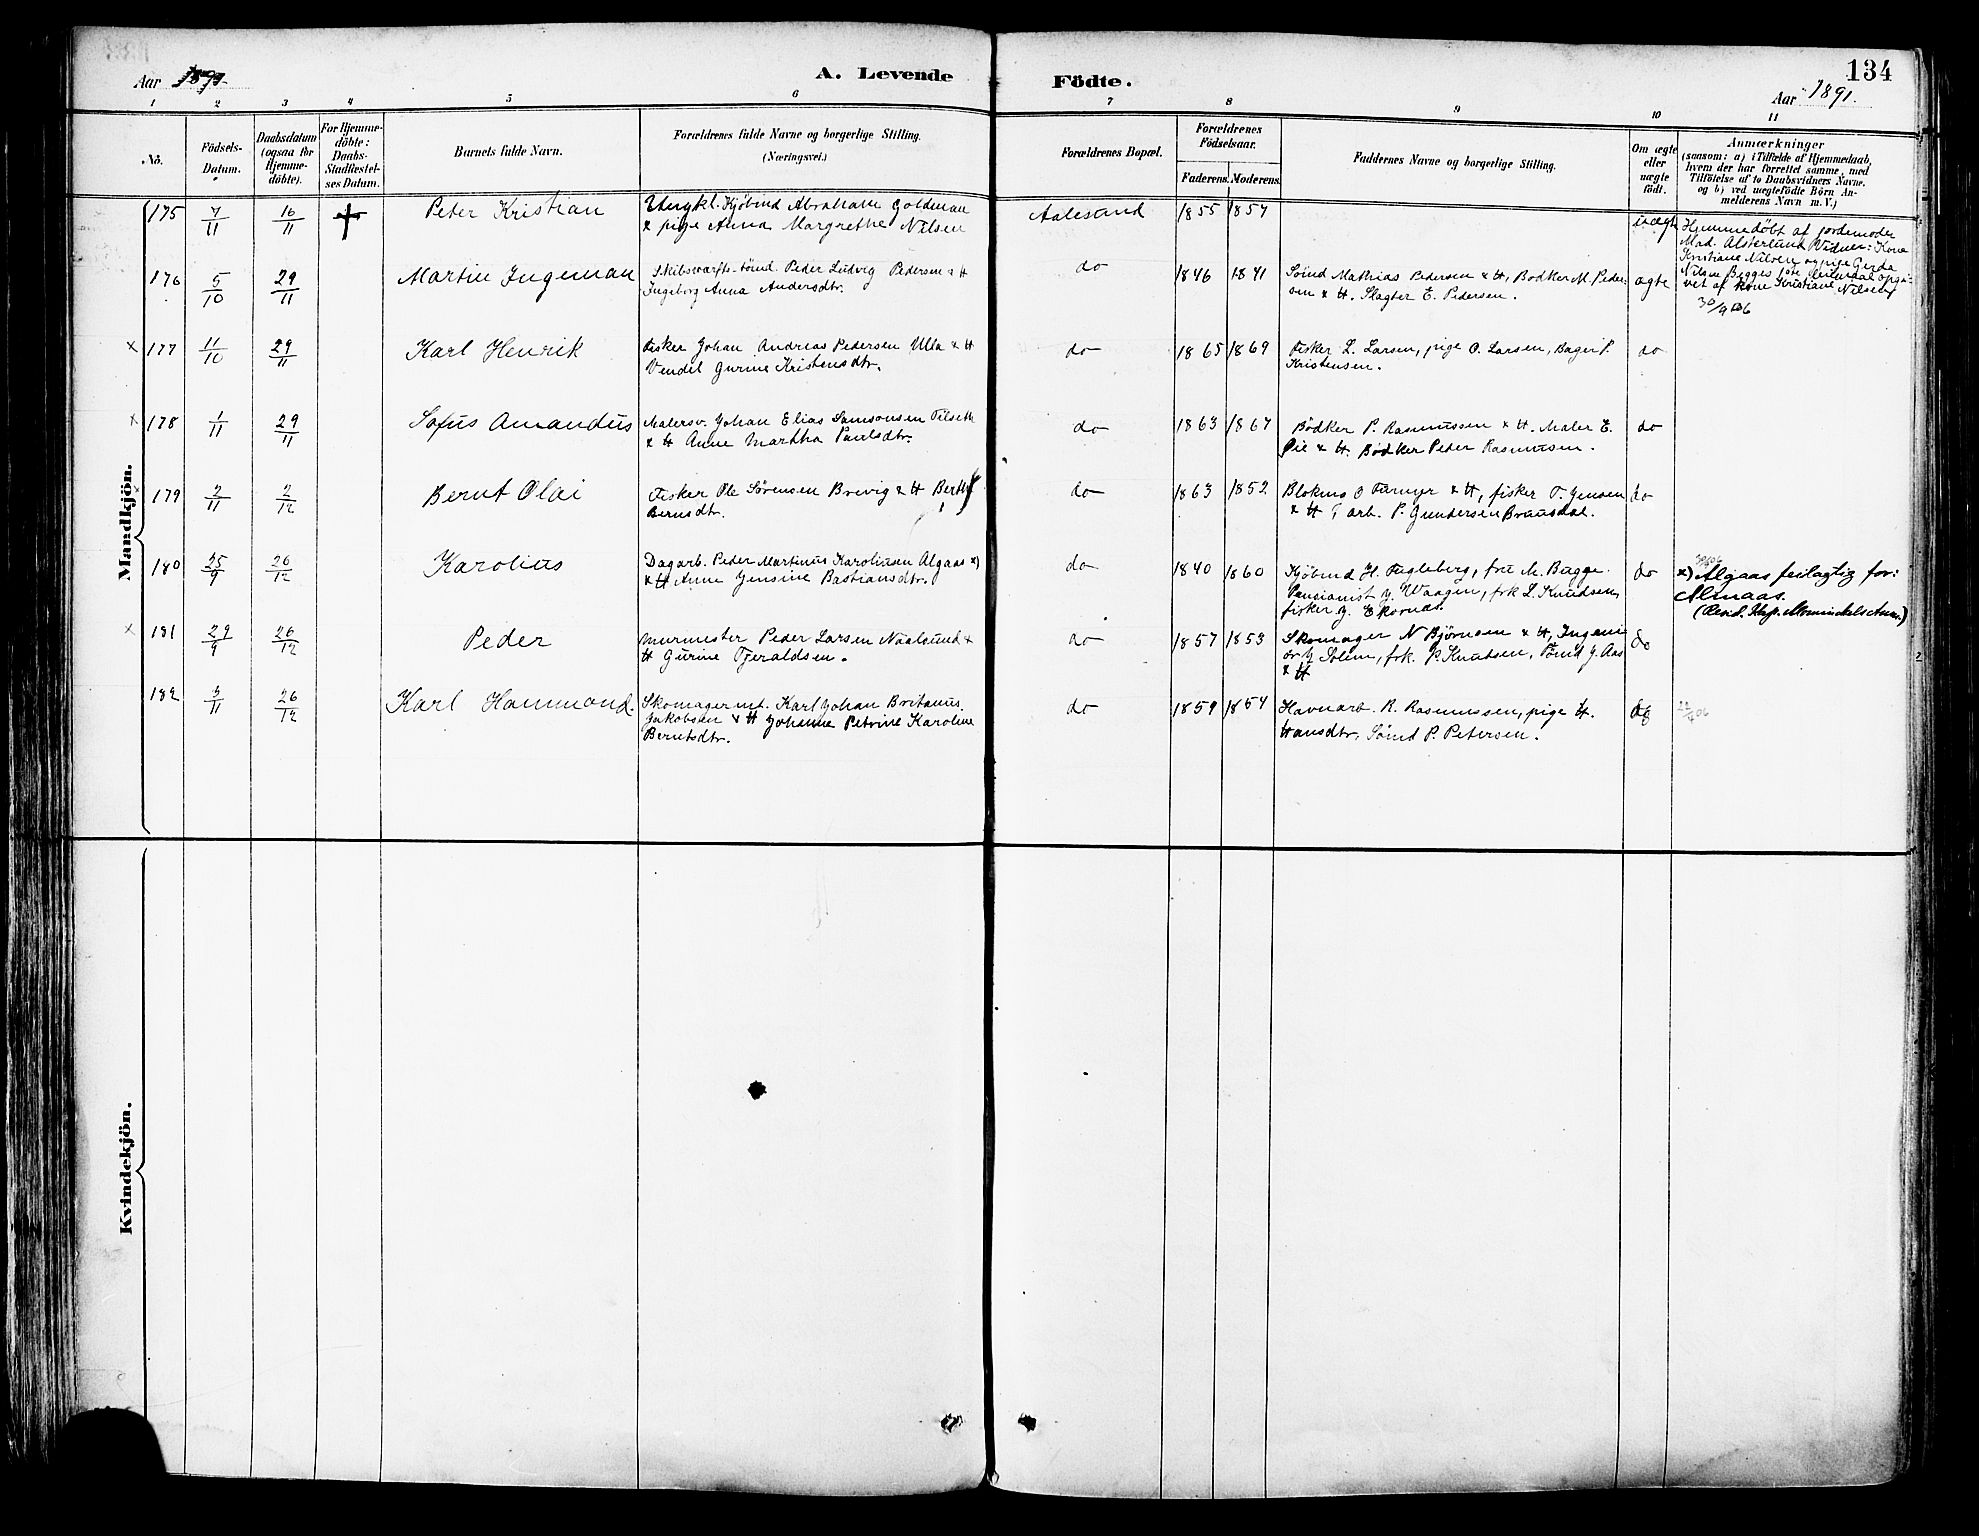 134
Aar 1891.
A. Levende Födte.
Aar 1891.
1 2 3 4 5 6 7 8 9 10 11
No.
Födsels-Datum.
Daabsdatum (ogsaa for Hjemme-döbte).
For Hjemme-döbte: Daabs-Stadfæstel-ses Datum.
Barnets fulde Navn.
Forældrenes fulde Navne og borgerlige Stilling. (Næringsvei.)
Forældrenes Bopæl.
Forældrenes Födselsaar.
Faderens. Moderens.
Faddernes Navne og borgerlige Stilling.
Om ægte eller uægte födt.
Anmærkninger
(saasom: a) i Tilfælde af Hjemmedaab,
hvem der har forrettet samme, med
Tilföielse af to Daabsvidners Navne,
og b) ved uægtefödte Börn An-
melderens Navn m. V.)
Mandkjön.
175 7/11 16/11 Peter Kristian
Kjøbmd Abraham Goldman
& pige Anna Margrethe Nilsen
Aalesund 1855 1857 uægte
Hjemmedøbt af jordemoder
Mad. Alsterlund Vidner: Kone
Kristiane Nilsen og pige Gerda
Nilsen Begges
vet af kone Kristiane Nilsen
30/9 06
176 5/10 29/11 Martin Ingeman
Skibsværfts-tømd. Peder Ludvig Pedersen & H
Ingeborg Anna Andersdtr.
do 1846 1841
Tømd Mathias Pedersen & H, Bødker M. Peder-
sen & H. Slagter E. Pedersen.
ægte
x 177 11/10 29/11 Karl Henrik
Fisker Johan Andreas Pedersen Ulla & H
Vendel Gurine Kristensdtr.
do 1865 1869
Fisker L. Larsen, pige O. Larsen, Bager P.
Kristensen.
do
x 178 1/11 29/11 Sofus Amandus
Malersv. Johan Elias Samsonsen Tilseth
& H Anne Martha Paulsdtr.
do 1863 1867
Bødker P. Rasmussen & H. Maler E.
Øie & H. Bødker Peder Rasmussen.
do
179 2/11 2/12 Bernt Olai
Fisker Ole Sørensen Brevig & H Berthe
Berntsdtr.
do 1863 1852
& H, fisker T. Jensen
& H, arb. P. Gundersen Brunsdal.
do
180 25/9 26/12 Karolius
Dagarb. Peder Martinus Karoliusen Algaas x)
& H Anne Jensine Bastiansdtr.
do 1840 1860
Kjøbmd H. Fugleberg, fru M. Bugge.
Pensionist J. Waagen, frk L. Knudsen,
fisker J. Ekornes.
do
x) Algaas feilagtig for:
Almaas.
x 181 29/9 26/12 Peder
Murmester Peder Larsen Naalsund &
H Gurine Tjeraldsen.
do 1857 1853
Skomager N Bjørnsen & H, Ingeni-
ør J Solem, frk. P. Knudsen, Tømd J. Aas
& H
do
182 3/11 26/12 Karl Hammond.
Skomagermt. Karl Johan Britanus
Jakobsen & H Johanne Petrine Karoline
Berntsdtr.
do 1859 1854
Havnarb. R. Rasmussen, pige H.
Hansdtr, Tømd P. Petersen.
do
Kvindekjön.